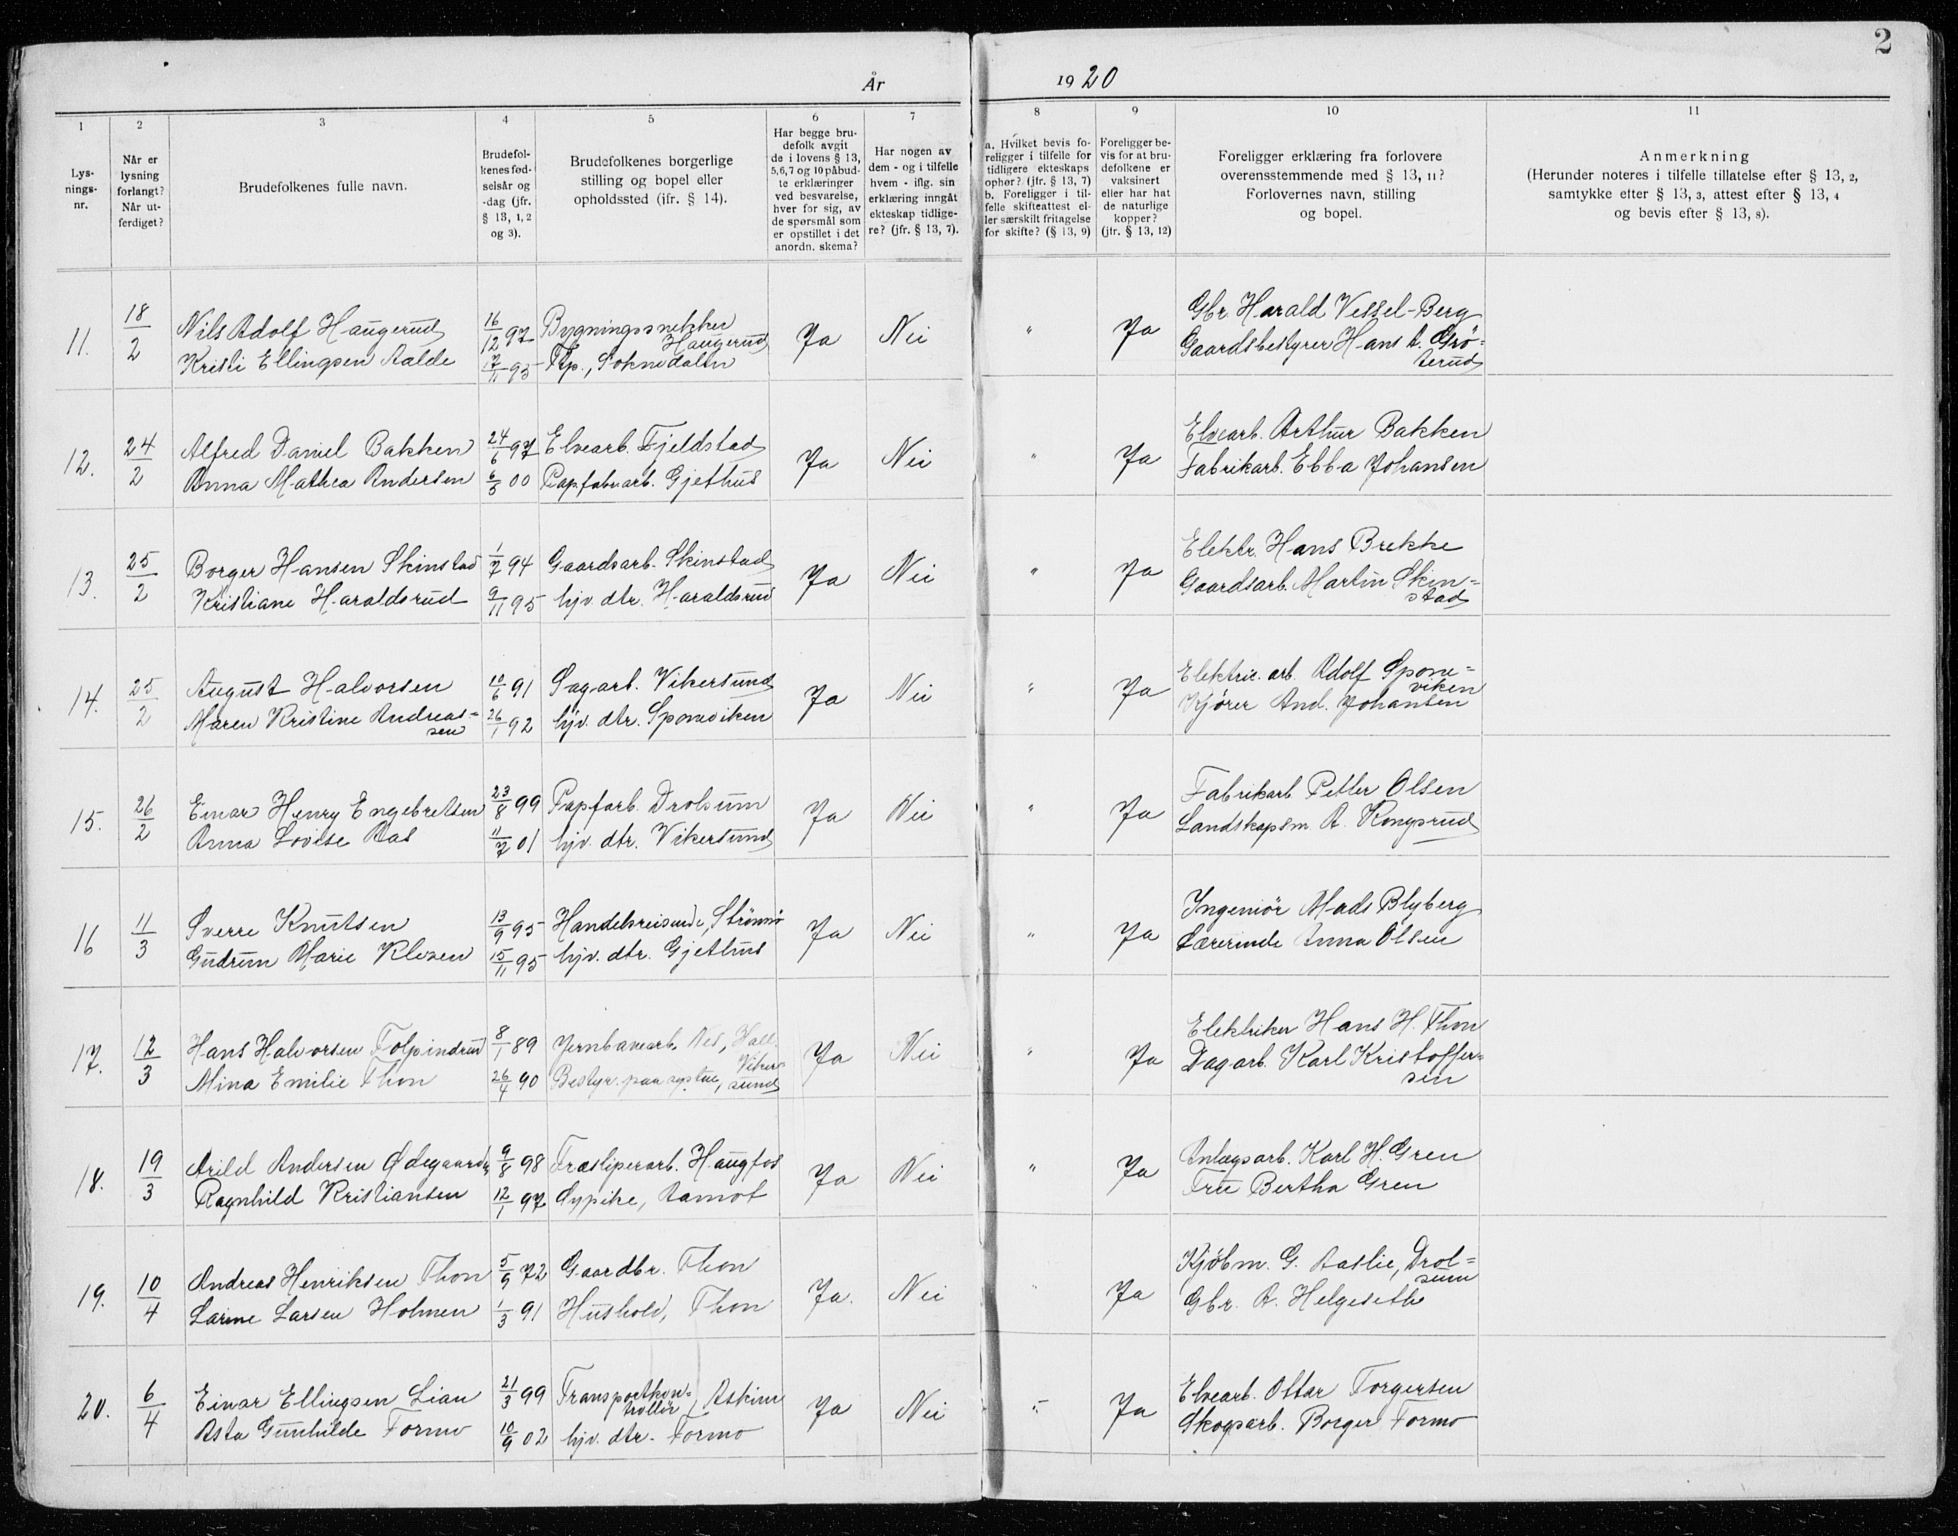 2
År 1920
1 2 3 4 5 6 7 8 9 10 11
Lys-
nings-
nr.
Når er
lysning
forlangt?
Når ut-
ferdiget?
Brudefolkenes fulle navn.
Brudefol-
kenes fød-
selsår og
-dag (jfr.
§ 13, 1, 2
og 3).
Brudefolkenes borgerlige
stilling og bopel eller
opholdssted (ifr. § 14).
Har begge bru-
defolk avgit
de i lovens § 13,
5, 6, 7 og 10 påbud-
te erklæringer
ved besvarelse,
hver for sig, av
de spørsmål som
er opstillet i det
anordn. skema?
Har nogen av
dem - og i tilfelle
hvem - iflg. sin
erklæring inngåt
ekteskap tidlige-
re? (jfr. § 13, 7).
a. Hvilket bevis fo-
religger i tilfelle for
tidligere ekteskaps
ophør? (jfr. § 13, 7)
b. Foreligger i til-
felle skifteattest el-
ler særskilt fritagelse
for skifte? (§ 13, 9)
Foreligger be-
vis for at bru-
defolkene er
vaksinert
eller har hat
de naturlige
kopper?
(jfr. § 13, 12)
Foreligger erklæring fra forlovere
overensstemmende med § 13, 11?
Forlovernes navn, stilling
og bopel.
Anmerkning
(Herunder noteres i tilfelle tillatelse efter § 13, 2,
samtykke efter § 13, 3, attest efter § 13, 4
og bevis efter § 13, 8).
11. 18/2 Nils Adolf Haugerud 16/12 97 Bygningssnekker Haugerud Ja Nei " Ja Gbr. Harald Vessel-Berg
Kristi Ellingsen Aalde 17/11 95 Tp., Soknedalen Gaardsbestyrer Hans A. Grø-
terud
12. 24/2 Alfred Daniel Bakken 24/6 97 Elvearb. Fjeldstad Ja Nei " Ja Elvearb. Arthur Bakken
Anna Mathea Andersen 00 Papfabr.arb. Gjethus Fabrikarb. Ebba Johansen
13. 25/2 Borger Hansen Skinstad 1/7 94 Gaardsarb. Skinstad Ja Nei " Ja Elektr. Hans Brekke
Kristiane Haraldsrud 9/11 95 hjv. dtr. Haraldsrud Gaardsarb. Martin Skin-
stad
14. 25/2 August Halvorsen 10/6 91 Sagarb. Vikersund Ja Nei " Ja Elektric. arb. Adolf Spone-
viken
Maren Kristine Andreas-
sen 26/1 92 hjv. dtr. Sponeviken Kjører And. Johansen
15. 26/2 Einar Henry Engebretsen 23/8 99 Papfarb. Drolsum Ja Nei " Ja Fabrikarb Petter Olsen
Anna Lovise Aas 11/7 01 hjv. dtr. Vikersund Landskapsm A. Kongsrud
16 11/3 Sverre Knutsen 13/9 95 Handelsreisende, Strømsø Ja Nei " Ja Ingeniør Mads Blyberg
Gudrun Marie Klosen 15/11 95 hjv. dtr. Gjethus Lærerinde Anna Olsen
17. 12/3 Hans Halvorsen Folpindrud 8/1 89 Jernbanearb. Nes, Hall. Ja Nei " Ja Elektriker Hans H. Thon
Mina Emilie Thon 26/4 90 Bestyr. paa systue, Viker-
sund Dagarb. Karl Kristoffer-
sen
18. 19/3 Arild Andersen Ødegaard 9/8 98 Træsliperarb. Haugfos Ja Nei " Ja Anlægsarb. Karl H. Gren
Ragnhild Kristiansen 12/1 97 Sypike, Aamot Fru Bertha Gren
19. 10/4 Andreas Henriksen Thon 5/9 72 Gaardbr. Thon Ja. Nei " Ja Kjøbm. G. Aaslie, Drol-
sum
Larine Larsen Holmen 1/3 91 Hushold, Thon Gbr. A. Helgeseth
20. 6/4 Einar Ellingsen Lian 21/3 99 Transportkon-
trollør, Askim Ja Nei " Ja Elvearb. Ottar Torgersen
Asta Gunhilde Formo 10/9 02 hjv. dtr. Formo Skogsarb. Borger Formo